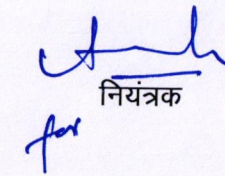 नियंत्रक
for